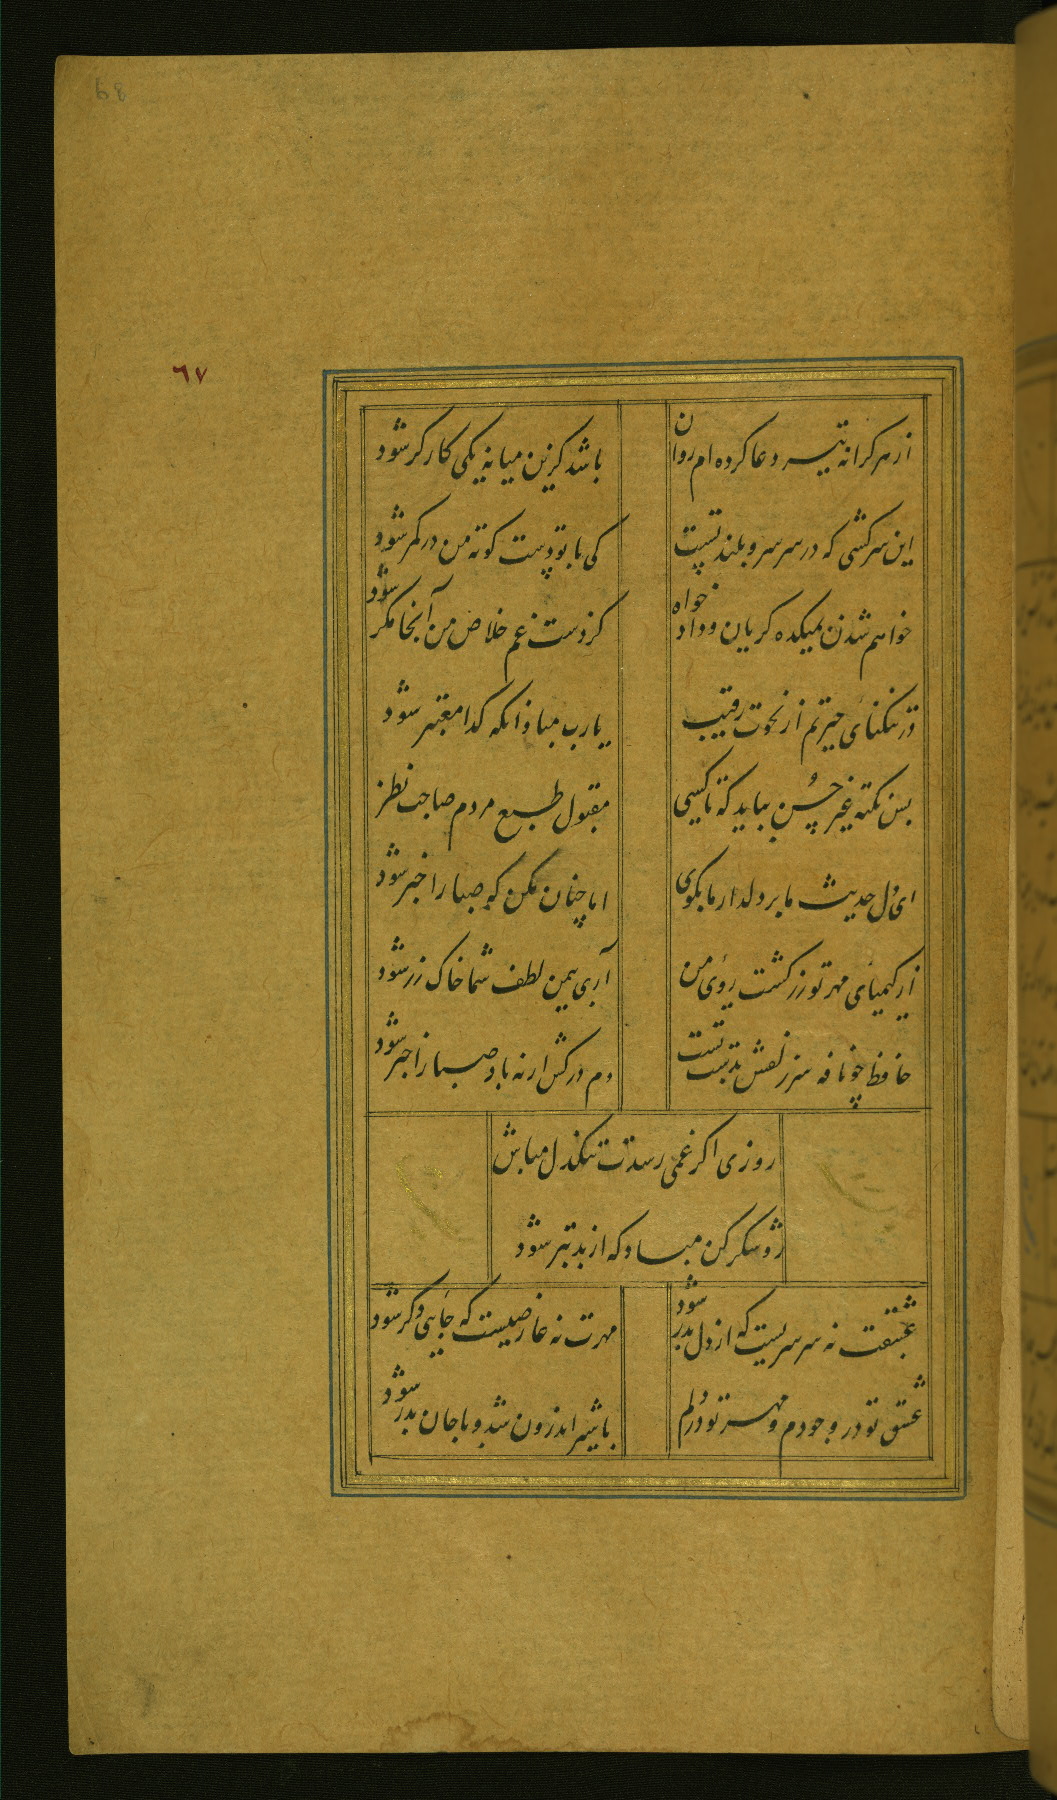 68
٦٧
از هر کرانه تیر دعا کرده ام روان
باشد کزین میانه یکی کارکر شود
این سرکشی که در سر سرو بلند تست
کی با تو دست کوته من در کمر شود
خواهم شدن بمیکده کریان و داد خواه
کز دست غم خلاص من آنجا مکر شود
در تنکنای حیرتم از نخوت رقیب
یارب مباد آنکه کدا معتبر شود
بس نکته غیر حسن بباید که تا کسی
مقبول طبع مردم صاحب نظر
ای دل حدیث ما بر دلدار ما بکوی
اما چنان مکن که صبا را خبر شود
از کیمیای مهر تو زر کشت روی من
آری بیمن لطف شما خاک زر شود
حافظ چو نافه سر زلفش بدست تست
دم درکش ار نه باد صبا را خبر شود
روزی اکر غمی رسدت تنکدل مباش
رو شکر کن مباد که از بد بتر شود
عشقت نه سرسریست که از دل بدر شود
مهرت نه عارضیست که جایی دکر شود
عشق تو در وجودم و مهر تو در دلم
با شیر اندرون شد و با جان بدر شود